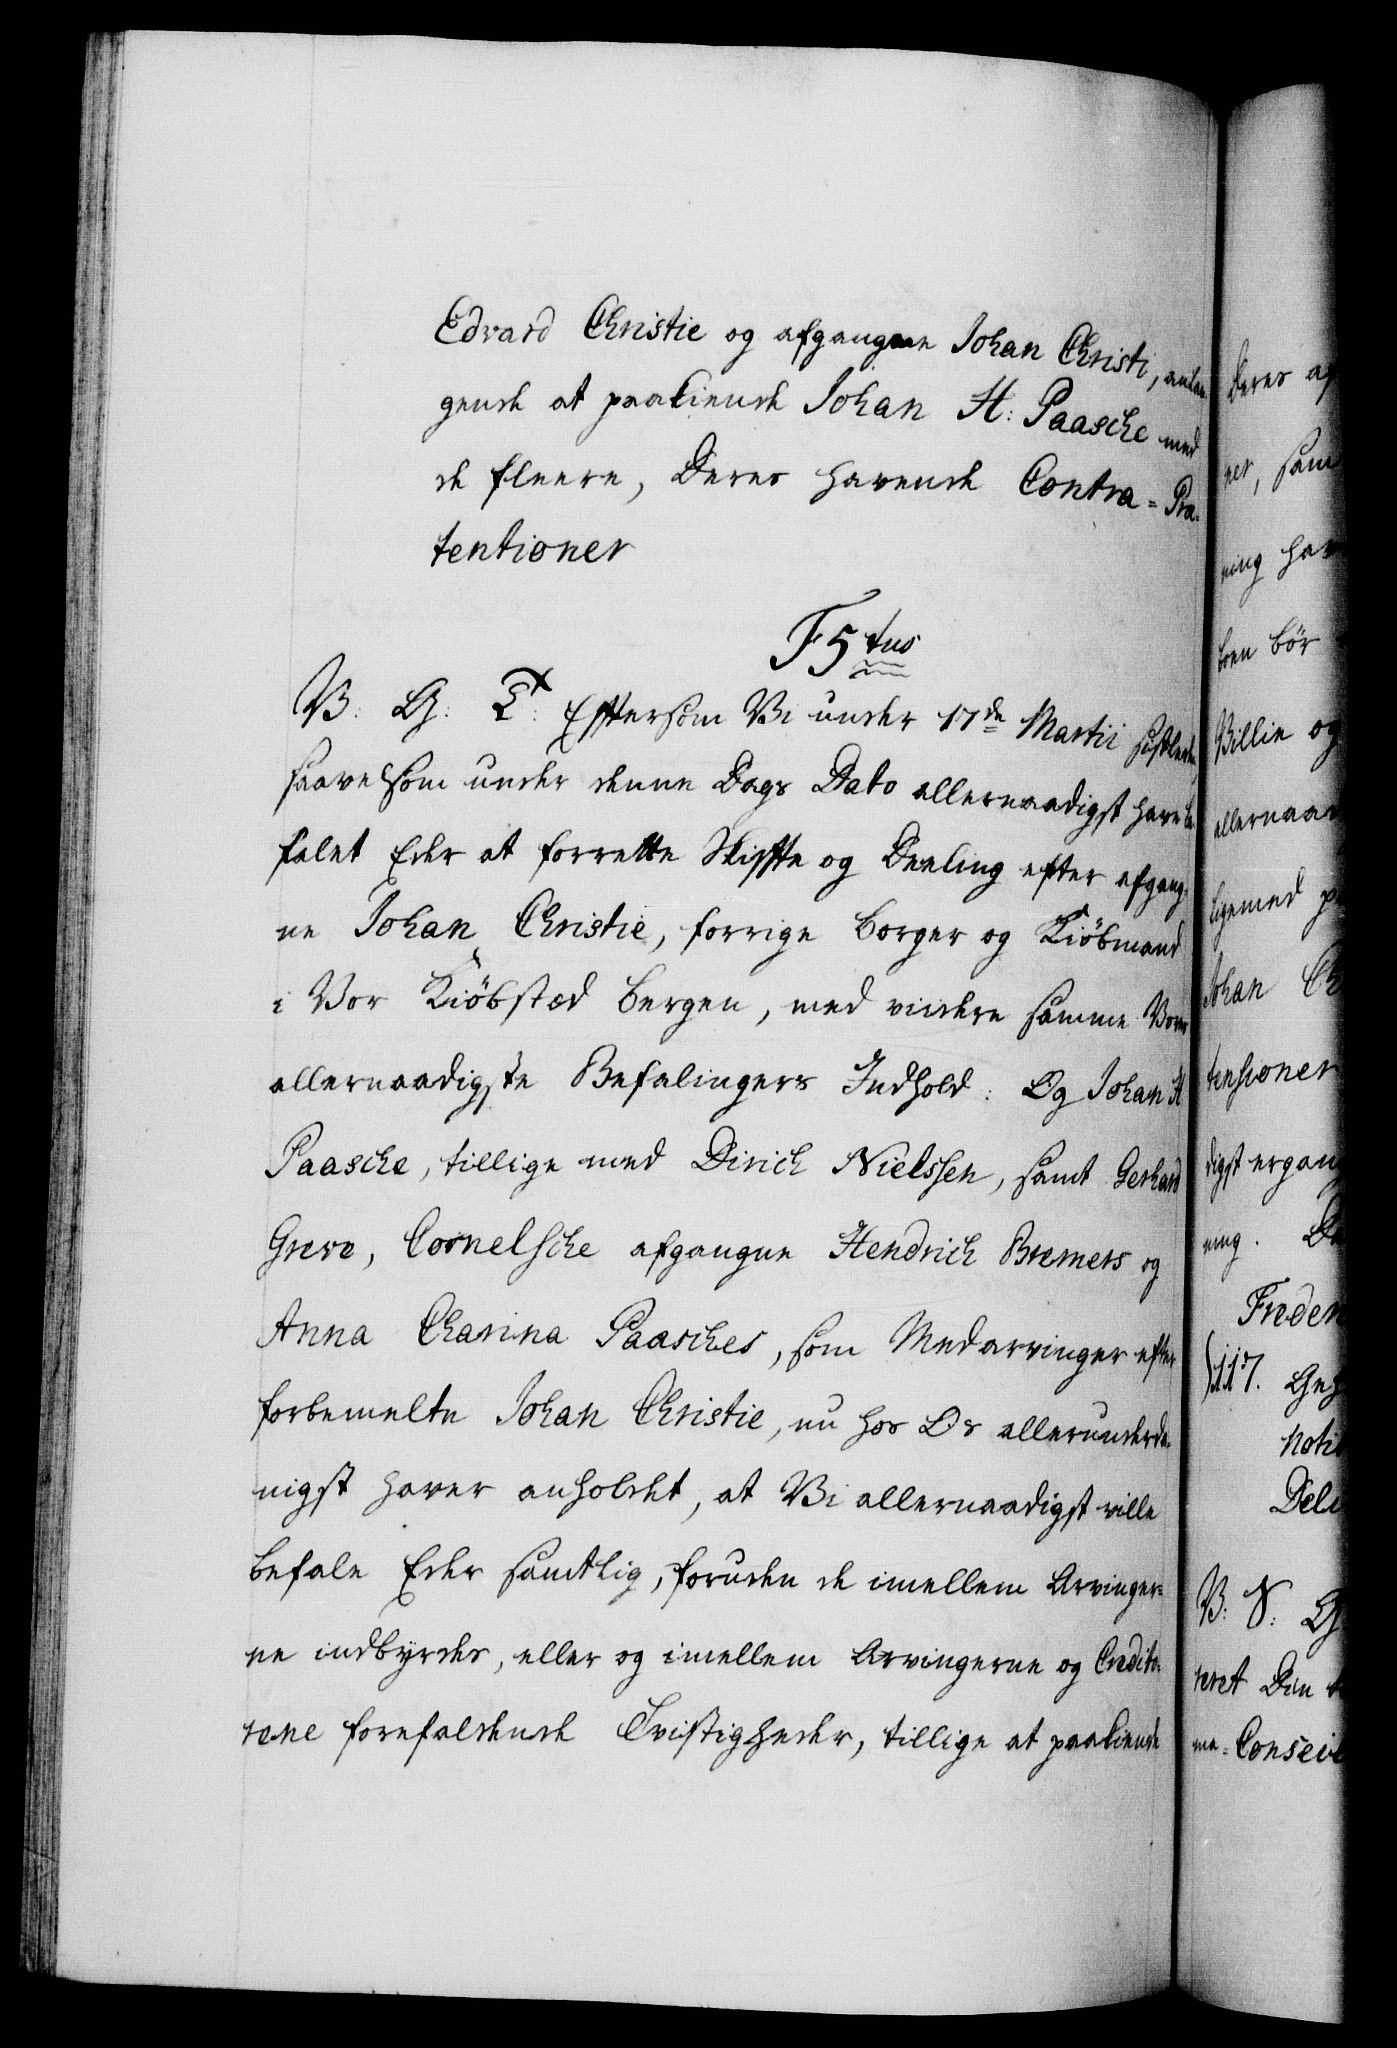 Edvard Christie og afgangne Johan Christi, anlan-
gende at paakiende Johan H: Paasche med
de fleere, Deres havende Contra-Præ-
tentioner
F5tus
V: G: T: Eftersom Vi under 17de Martii sistleden,
saavelsom under denne Dags Dato allernaadigst have be-
falet Eder at forrette Skiffte og Deeling efter afgang-
ne Johan Christie, forrige borger og Kiöbmand
i Vor Kiöbstæd bergen, med viidere samme Vores
allernaadigste Befalingers Indhold: Og Johan H
Paasche, tillige med Dirich Nielssen, samt Gerhard
Greve, Cornelsche afgangne Hendrich Bremers og
Anna Charina Paasches, som Medarvinger efter
forbemelte Johan Christie, nu hos Os allerunderda-
nigst haver anholdet, at Vi allernaadigst ville
befale Eder samtlig, foruden de imellem Arvinger-
ne indbyrdes, eller og imellem Arvingerne og Credito-
rerne forefaldende Tvistigheder, tillige at paakiende
Deres af
ner, sam
ning hav
boen bör
Billie og
allernaad
ligemed p
Johan Ch
tensioner
digst ergang
ning. De
Frederi
117.
Noti
V: S: G
reret Din
me-Conseil